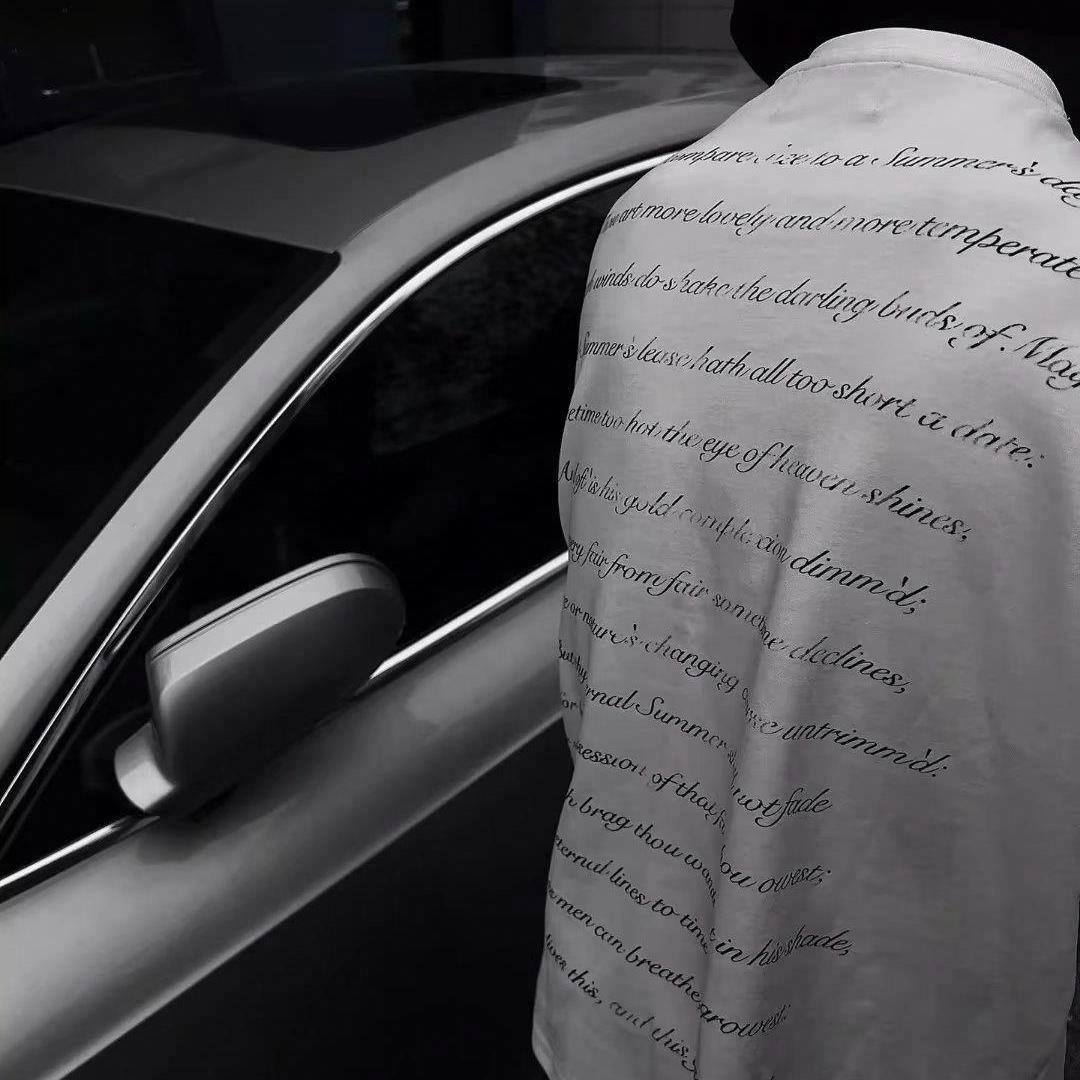 compare to a Summer's day
art more lovely and more temperate
winds do shake the darling buds of May
Summer's lease hath all too short a date:
too hot the eye of heaven shines,
his gold complexion dimm'd;
fair from fair sometime declines,
or nature's changing untrimm'd:
Summer fade
of that owest;
brag thou
lines to time in his shade,
men can breathe growest:
this, and this